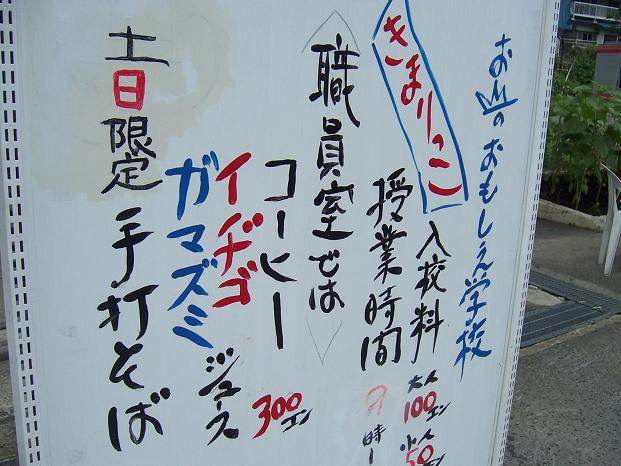 お山のおもしえ学校
きまりっこ
入校料
大人
100エン
小人
50
授業時間
時
職員室では
コーヒー
イヂゴ
ガマズミ
ジュース
300エン
土日限定
手打そば